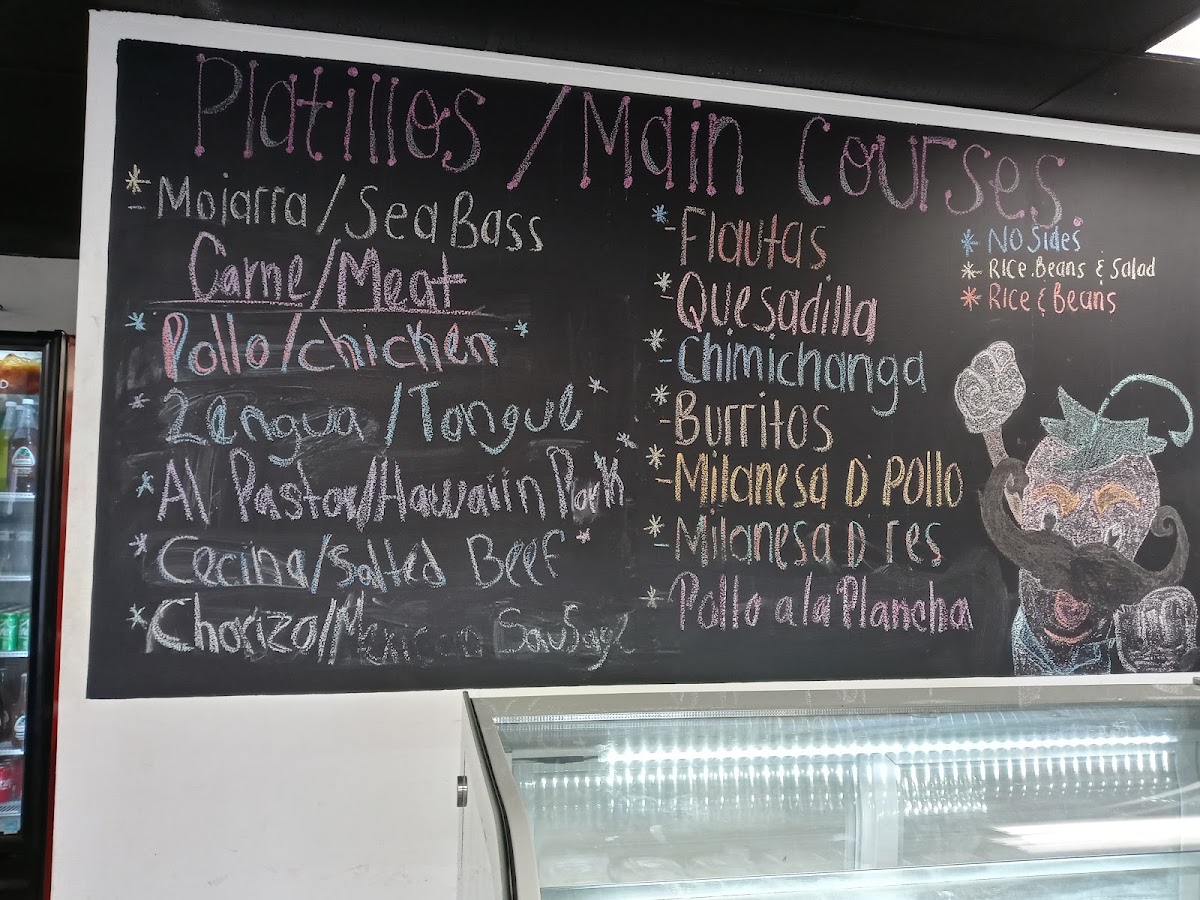 Platillos / Main Courses
* - Mojarra / Sea Bass
Carne / Meat
* Pollo / chicken *
* Lengua / Tongue *
* Al Pastor / Hawaiin Pork *
* Cecina / Salted Beef *
* Chorizo / Mexican Sausage
* - Flautas
* - Quesadilla
* - Chimichanga
* - Burritos
* - Milanesa D' Pollo
* - Milanesa D res
* Pollo a la Plancha
* No Sides
* Rice. Beans & Salad
* Rice & Beans